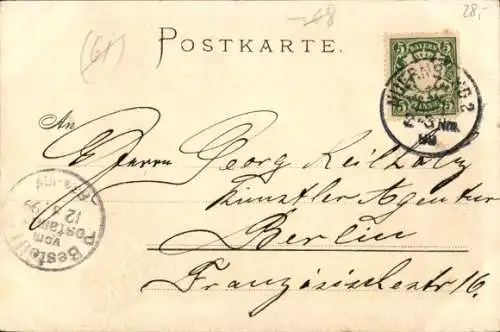 28,-
-68
(61)
POSTKARTE.
5 BAYERN 5
NUERNBERG 2
2-3 Nm.
99
An
Herrn Georg Reilholz
Künstler Agentur
Berlin
Französischestr 16.
Bestellt
vom
Postamt
12